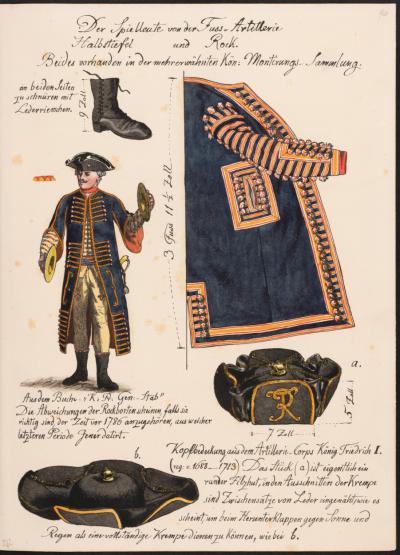 Der Spielleute von der Fuss-Artillerie
Halbstiefel und Rock.
Beides vorhanden in der mehrerwähnten Kön: Montirungs-Sammlung.
an beiden Seiten
zu schnüren mit
Lederriemchen.
9 Zoll
3 Fuss 11 ½ Zoll
Aus dem Buche „K. Pr. Gen-Stab"
Die Abweichungen der Rockborten scheinen, falls sie
richtig sind, der Zeit vor 1786 anzugehören, aus welcher
letzteren Periode Jener datirt.
a.
FR
5 Zoll
7 Zoll
Kopfbedeckung aus dem Artillerie-Corps König Friedrich I.
(reg: 1688-1713) Das Stück (a) ist eigentlich ein
runder Filzhut, in den Ausschnitten der Krempe
sind Zwischensätze von Leder eingenäht, wie es
scheint, um beim Herunterklappen gegen Sonne und
Regen als eine vollständige Krempe dienen zu können, wie bei b.
b.